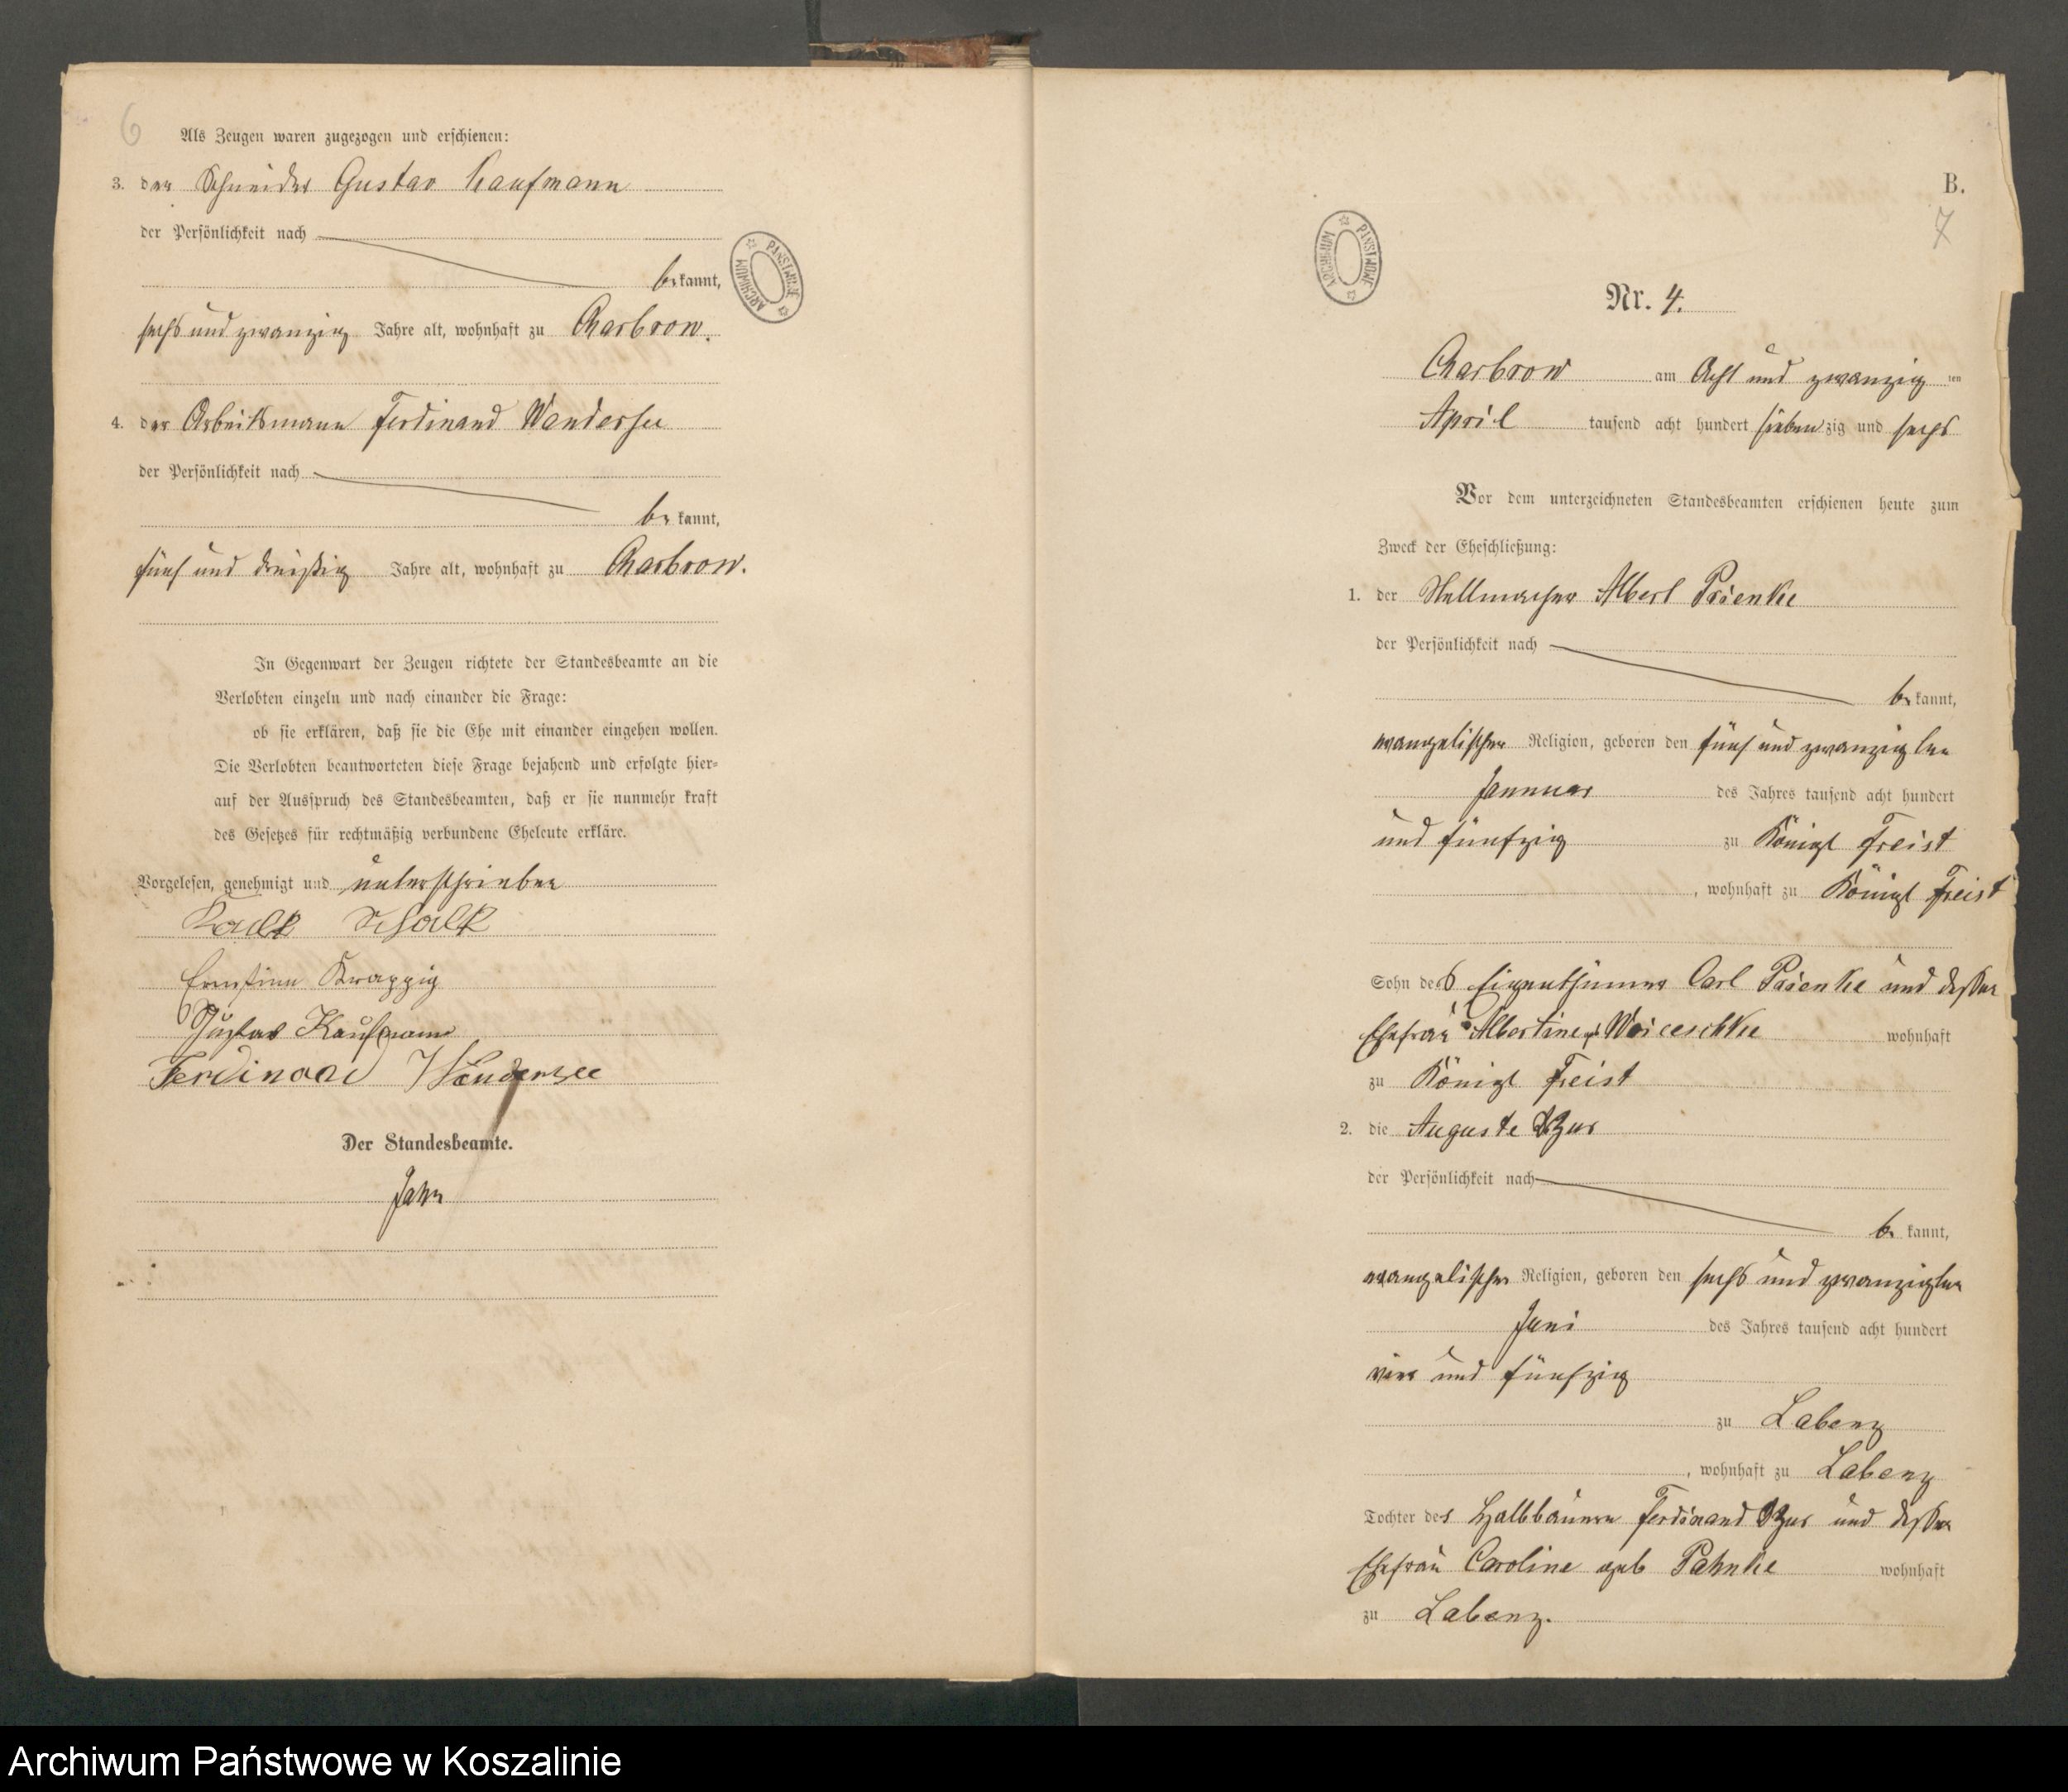 6
Als Zeugen waren zugezogen und erschienen:
3. der Schneider Gustav Kaufmann
der Persönlichkeit nach
be kannt,
sechs und zwanzig Jahre alt, wohnhaft zu Charbrow.
4. der Arbeitsmann Ferdinand Wandersee
der Persönlichkeit nach
be kannt,
fünf und dreißig Jahre alt, wohnhaft zu Charbrow.
In Gegenwart der Zeugen richtete der Standesbeamte an die
Verlobten einzeln und nach einander die Frage:
ob sie erklären, daß sie die Ehe mit einander eingehen wollen.
Die Verlobten beantworteten diese Frage bejahend und erfolgte hier-
auf der Ausspruch des Standesbeamten, daß er sie nunmehr kraft
des Gesetzes für rechtmäßig verbundene Eheleute erkläre.
Vorgelesen, genehmigt und unterschrieben
Schalk
Ernstine Krappig
Gustav Kaufmann
Ferdinand Wandersee
Der Standesbeamte.
Jahn
ARCHIWUM PAŃSTWOWE
B.
7
ARCHIWUM PAŃSTWOWE
Nr. 4.
Charbrow am Acht und zwanzig ten
April tausend acht hundert sieben zig und sechs
Vor dem unterzeichneten Standesbeamten erschienen heute zum
Zweck der Eheschließung:
1. der Stellmacher Albert Prienke
der Persönlichkeit nach
be kannt,
evangelischer Religion, geboren den fünf und zwanzigsten
Januar des Jahres tausend acht hundert
und fünfzig zu Königl Freist
, wohnhaft zu Königl Freist
Sohn des Eigenthümer Carl Prienke und dessen
Ehefrau Albertine Woiceschke wohnhaft
zu Königl Freist
2. die Auguste
der Persönlichkeit nach
be kannt,
evangelischer Religion, geboren den sechs und zwanzigsten
Juni des Jahres tausend acht hundert
vier und fünfzig
zu Labenz
, wohnhaft zu Labenz
Tochter des Halbbauern Ferdinand und dessen
Ehefrau Caroline geb Pahnke wohnhaft
zu Labenz.
Archiwum Państwowe w Koszalinie